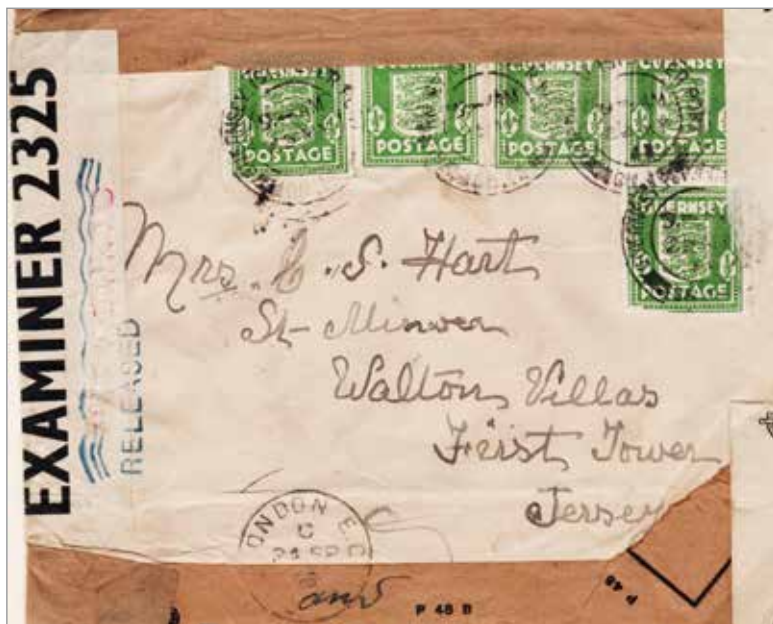 EXAMINER 2325
RELEASED
GUERNSEY
POSTAGE
GUERNSEY
POSTAGE
GUERNSEY
POSTAGE
GUERNSEY
POSTAGE
GUERNSEY
POSTAGE
Mrs. E. S. Hart
St Minver
Walton Villas
First Tower
Jersey
ONDON E.C
C
24 SP
P 48 B
P 48